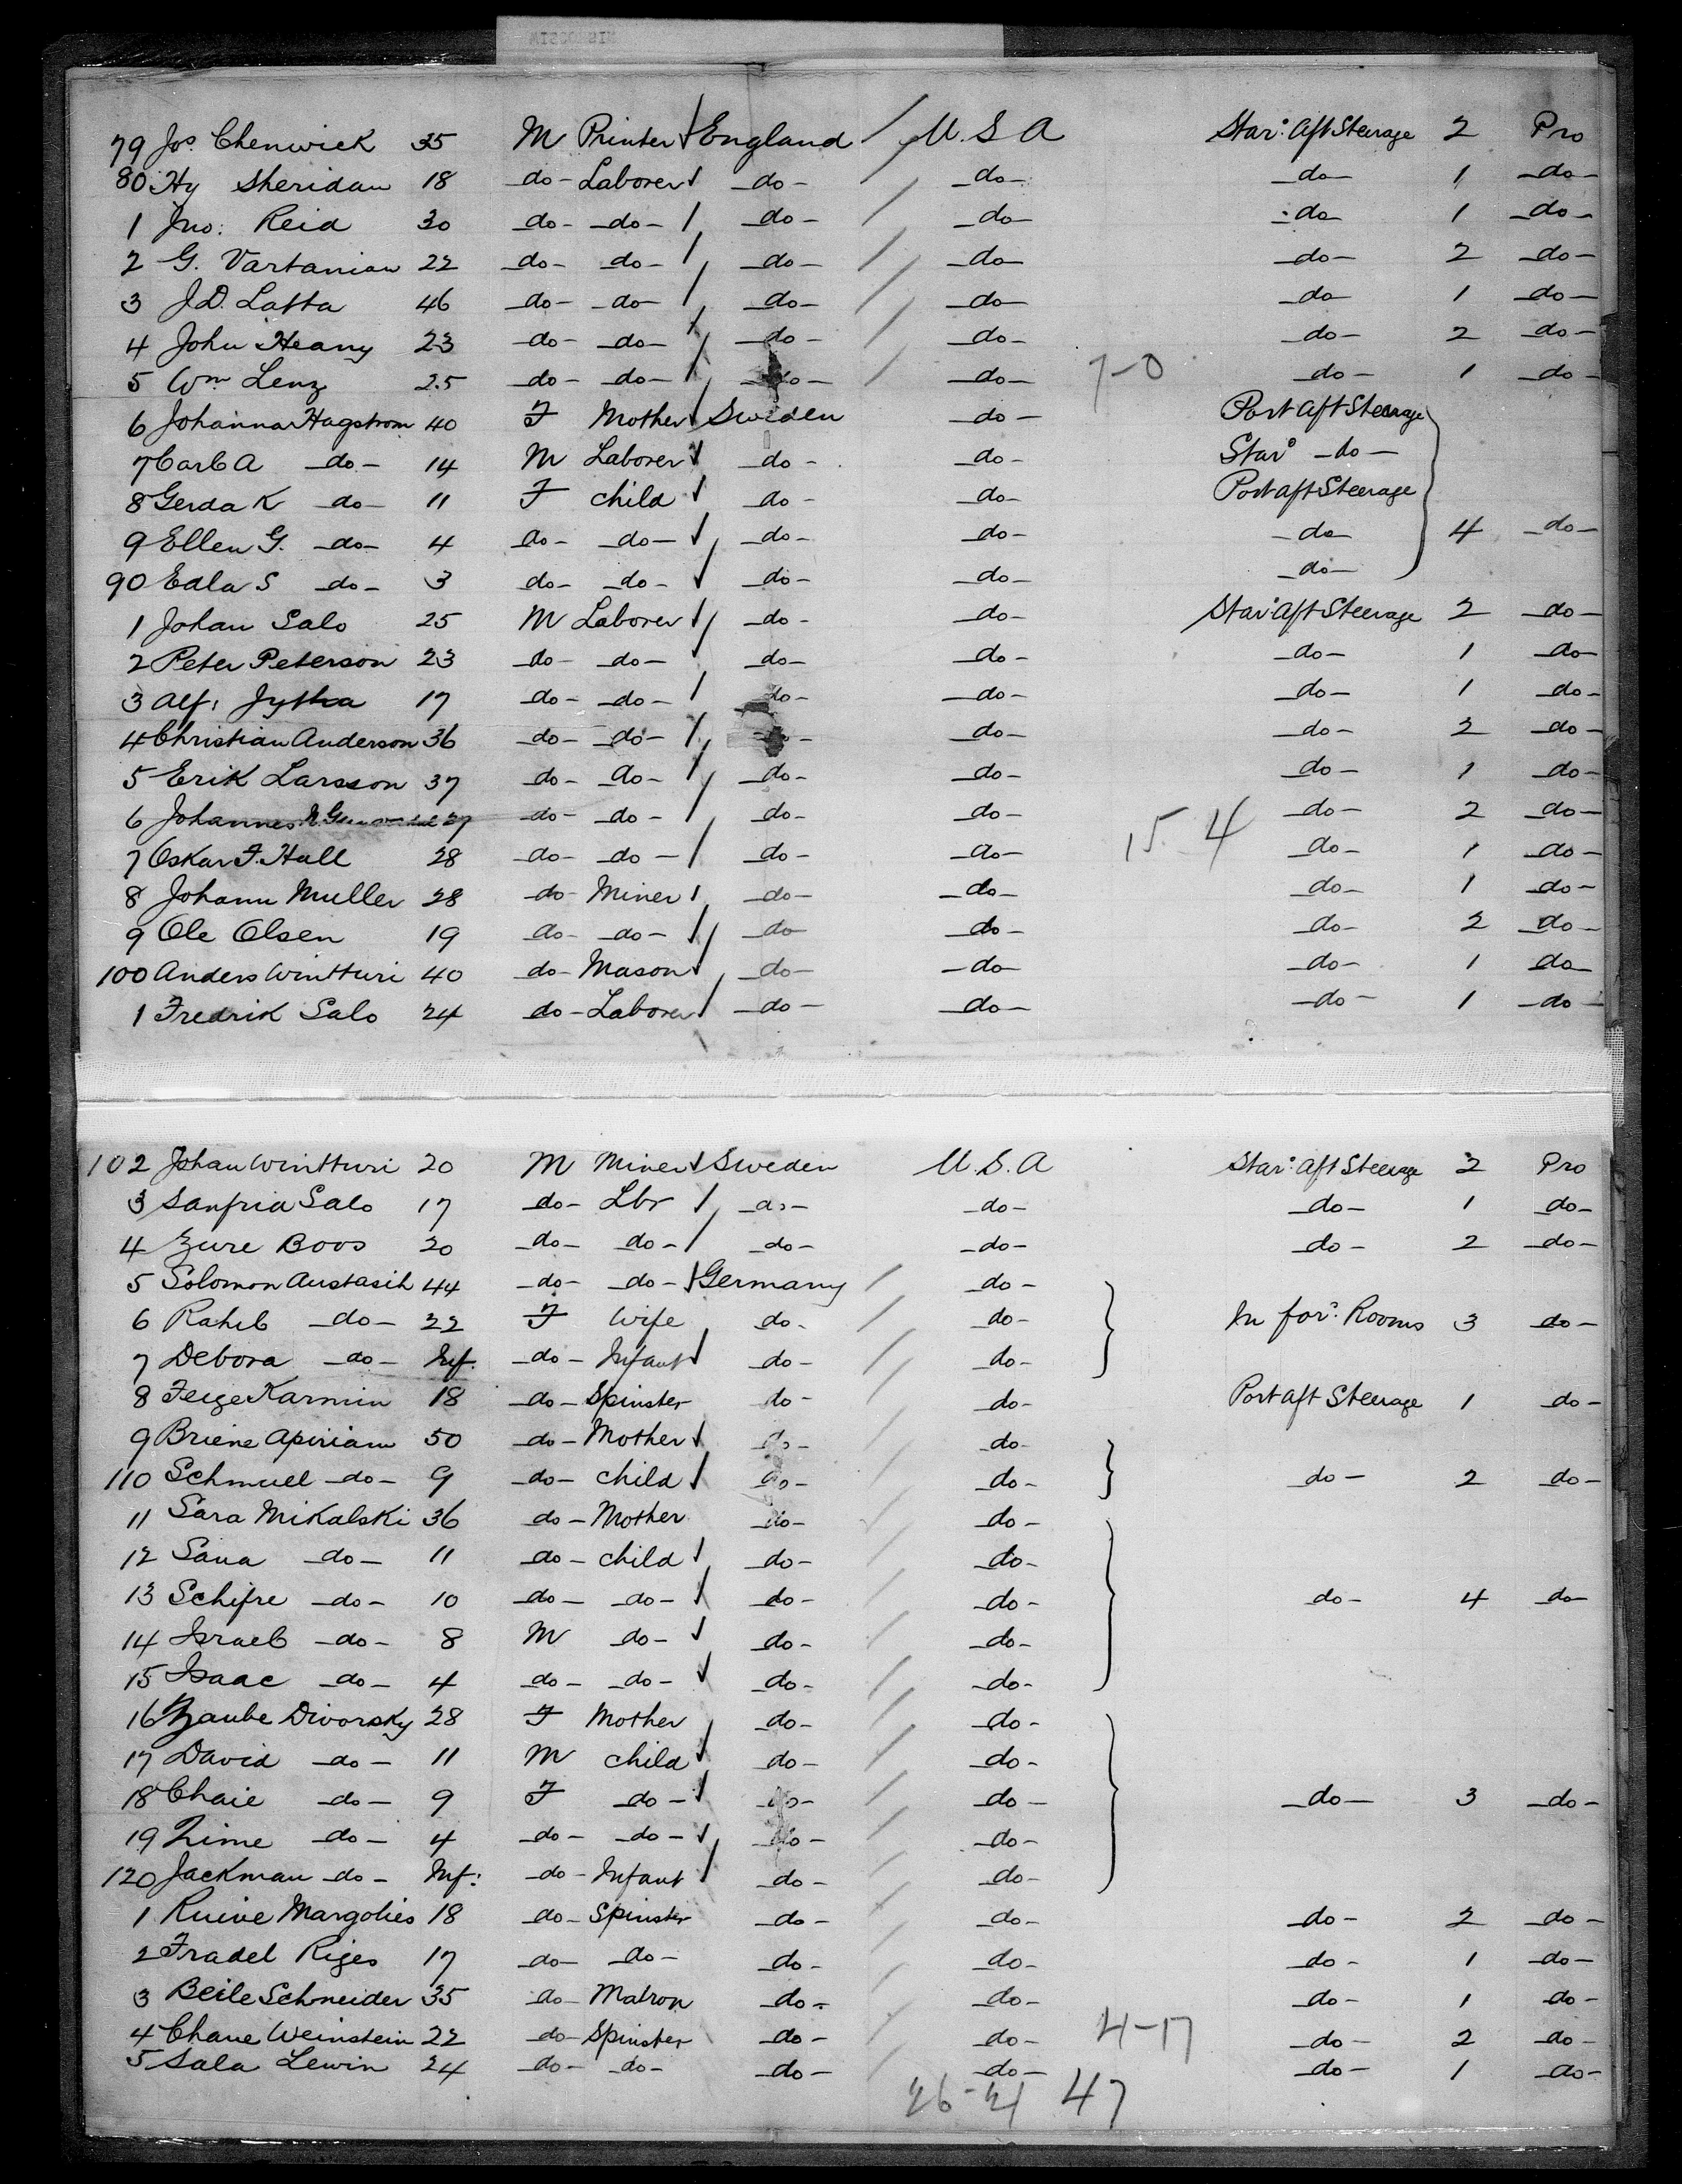 79 Jos. Chenwick 35 M Printer England U.S.A Star: Aft Steerage 2 Pro
80 Hy Sheridan 18 do Laborer do do do 1 do
1 Jno: Reid 30 do do do do do 1 do
2 G. Vartanian 22 do do do do do 2 do
3 J.D. Latta 46 do do do do do 1 do
4 John Heany 23 do do do do do 2 do
5 Wm Lenz 25 do do do do 7-0 do 1 do
6 Johanna Hagstrom 40 F Mother Sweden do Port Aft Steerage
7 Carl A do 14 M Laborer do do Star: do
8 Gerda K do 11 F child do do Port aft Steerage
9 Ellen G. do 4 do do do do do 4 do
90 Edla S do 3 do do do do do
1 Johan Salo 25 M Laborer do do Star: Aft Steerage 2 do
2 Peter Peterson 23 do do do do do 1 do
3 Alf: Jytha 17 do do do do do 1 do
4 Christian Anderson 36 do do do do do 2 do
5 Erik Larsson 37 do do do do do 1 do
6 Johannes N. 27 do do do do do 2 do
7 Oskar F. Hall 28 do do do do 15.4 do 1 do
8 Johann Muller 28 do Miner do do do 1 do
9 Ole Olsen 19 do do do do do 2 do
100 Anders Wintturi 40 do Mason do do do 1 do
1 Fredrik Salo 24 do Laborer do do do 1 do
102 Johan Wintturi 20 M Miner Sweden U.S.A Star: Aft Steerage 2 Pro
3 Sanfrid Salo 17 do Lbr do do do 1 do
4 Zure Boos 20 do do do do do 2 do
5 Solomon Austasih 44 do do Germany do
6 Rahel do 22 F Wife do do In for: Rooms 3 do
7 Debora do Inf. do Infant do do
8 Feige Karmin 18 do Spinster do do Port aft Steerage 1 do
9 Briene Apiriam 50 do Mother do do
110 Schmuel do 9 do child do do do 2 do
11 Sara Mikalski 36 do Mother do do
12 Sana do 11 do child do do
13 Schifre do 10 do do do do do 4 do
14 Israel do 8 M do do do
15 Isaac do 4 do do do do
16 Zaube Divorsky 28 F Mother do do
17 David do 11 M child do do
18 Chaie do 9 F do do do do 3 do
19 Zime do 4 do do do do
120 Jackman do Inf: do Infant do do
1 Ruive Margolies 18 do Spinster do do do 2 do
2 Fradel Riges 17 do do do do do 1 do
3 Beile Schneider 35 do Matron do do do 1 do
4 Chane Weinstein 22 do Spinster do do 4-17 do 2 do
5 Sala Lewin 24 do do do do do 1 do
26-21 47